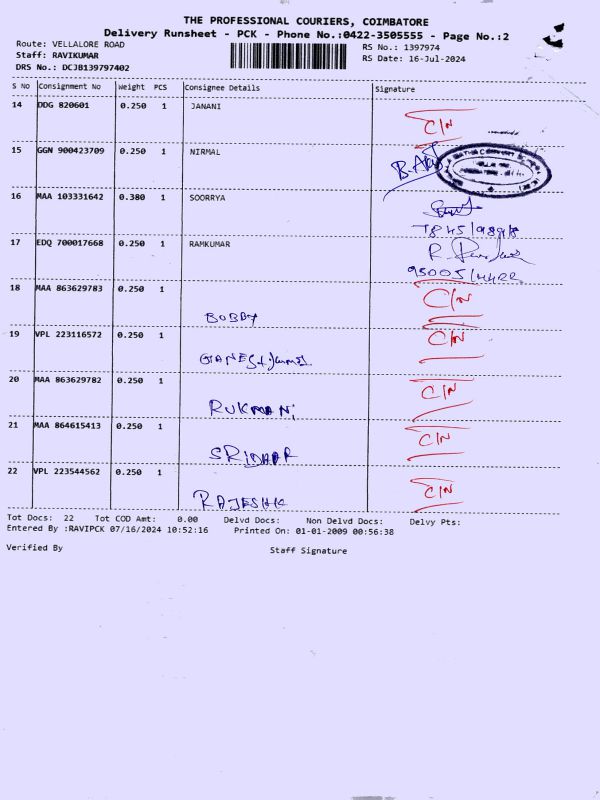 THE PROFESSIONAL COURIERS, COIMBATORE
Delivery Runsheet - PCK - Phone No.:0422-3505555 - Page No.:2
Route: VELLALORE ROAD
Staff: RAVIKUMAR
DRS No.: DCJB139797402
RS No.: 1397974
RS Date: 16-Jul-2024
S No Consignment No Weight PCS Consignee Details Signature
14 DDG 820601 0.250 1 JANANI
C/N
15 GGN 900423709 0.250 1 NIRMAL
16 MAA 103331642 0.380 1 SOORRYA
17 EDQ 700017668 0.250 1 RAMKUMAR
18 MAA 863629783 0.250 1
BOBBY C/N
19 VPL 223116572 0.250 1 C/N
20 MAA 863629782 0.250 1
RUKMANI C/N
21 MAA 864615413 0.250 1
SRIDHAR C/N
22 VPL 223544562 0.250 1
RAJESHK C/N
Tot Docs: 22 Tot COD Amt: 0.00 Delvd Docs: Non Delvd Docs: Delvy Pts:
Entered By :RAVIPCK 07/16/2024 10:52:16 Printed On: 01-01-2009 00:56:38
Verified By Staff Signature